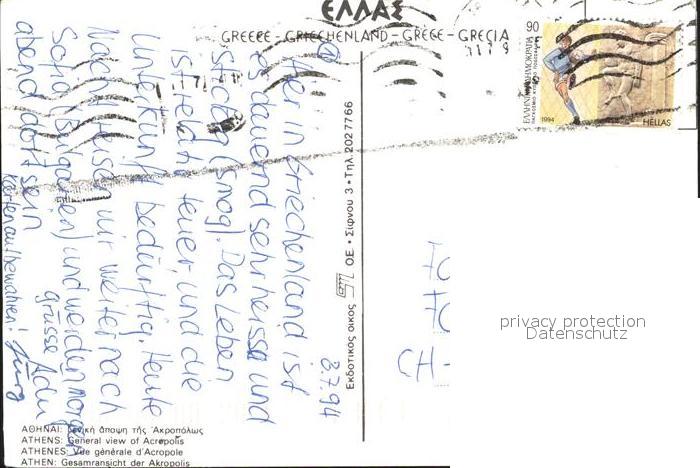 ΕΛΛΑΣ
GREECE - GRIECHENLAND - GRECE - GRECIA
90
ΕΛΛΗΝΙΚΗ ΔΗΜΟΚΡΑΤΙΑ
1994
HELLAS
8.7.94
Hier in Griechenland ist
es dauernd sehr heiss und
stickig (Smog). Das Leben
ist recht teuer und die
Unterkunft bedürftig. Heute
Nacht reisen wir weiter nach
Sofia (Bulgarien) und werden morgen
abend dort sein
Grüsse
Karten aufbewahren!
Εκδοτικός οίκος ΟΕ • Σίφνου 3 • Τηλ. 2027766
CH-
privacy protection
Datenschutz
ΑΘΗΝΑΙ: Γενική άποψη τής Ἀκροπόλως
ATHENS: General view of Acropolis
ATHENES: Vue générale d'Acropole
ATHEN: Gesamransicht der Akropolis